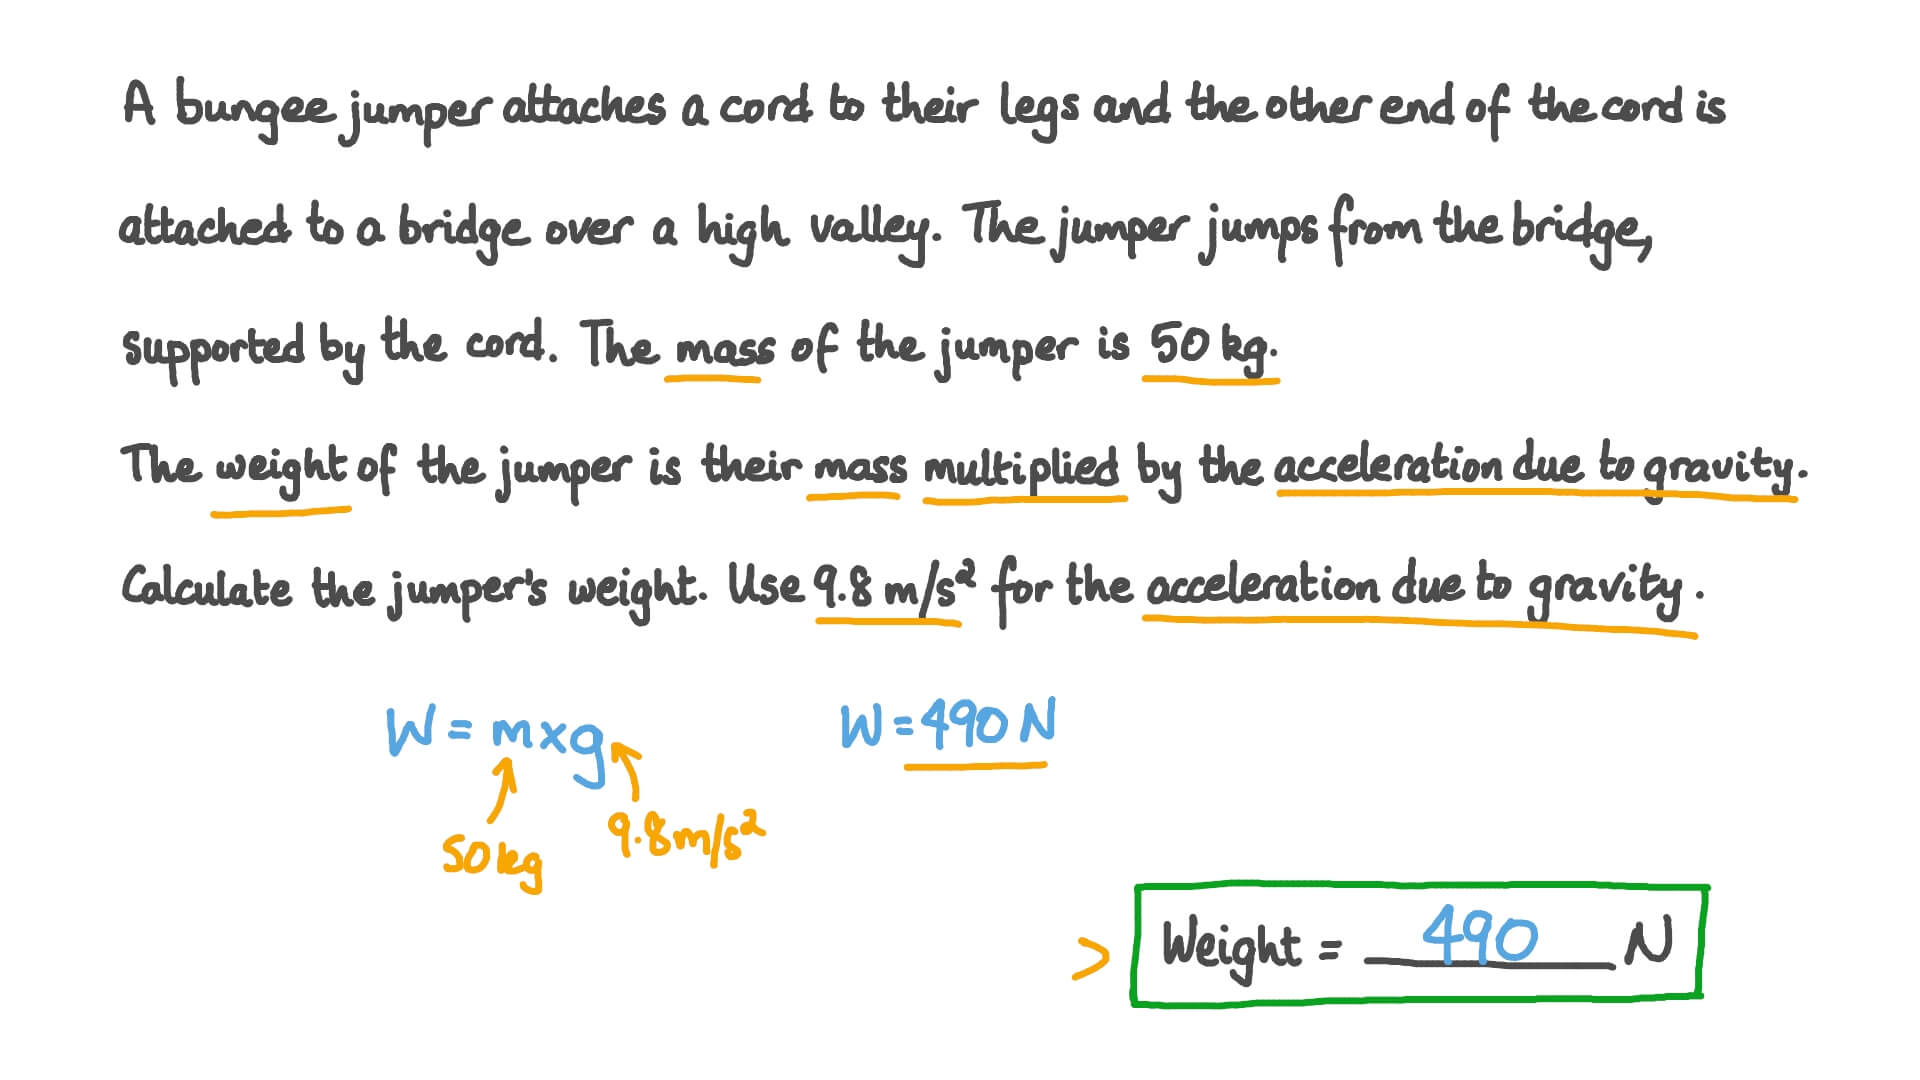 A bungee jumper attaches a cord to their legs and the other end of the cord is
attached to a bridge over a high valley. The jumper jumps from the bridge,
supported by the cord. The mass of the jumper is 50 kg.
The weight of the jumper is their mass multiplied by the acceleration due to gravity.
Calculate the jumper's weight. Use 9.8 m/s² for the acceleration due to gravity.
W = m×g
W = 490 N
50 kg
9.8 m/s²
> Weight = 490 N